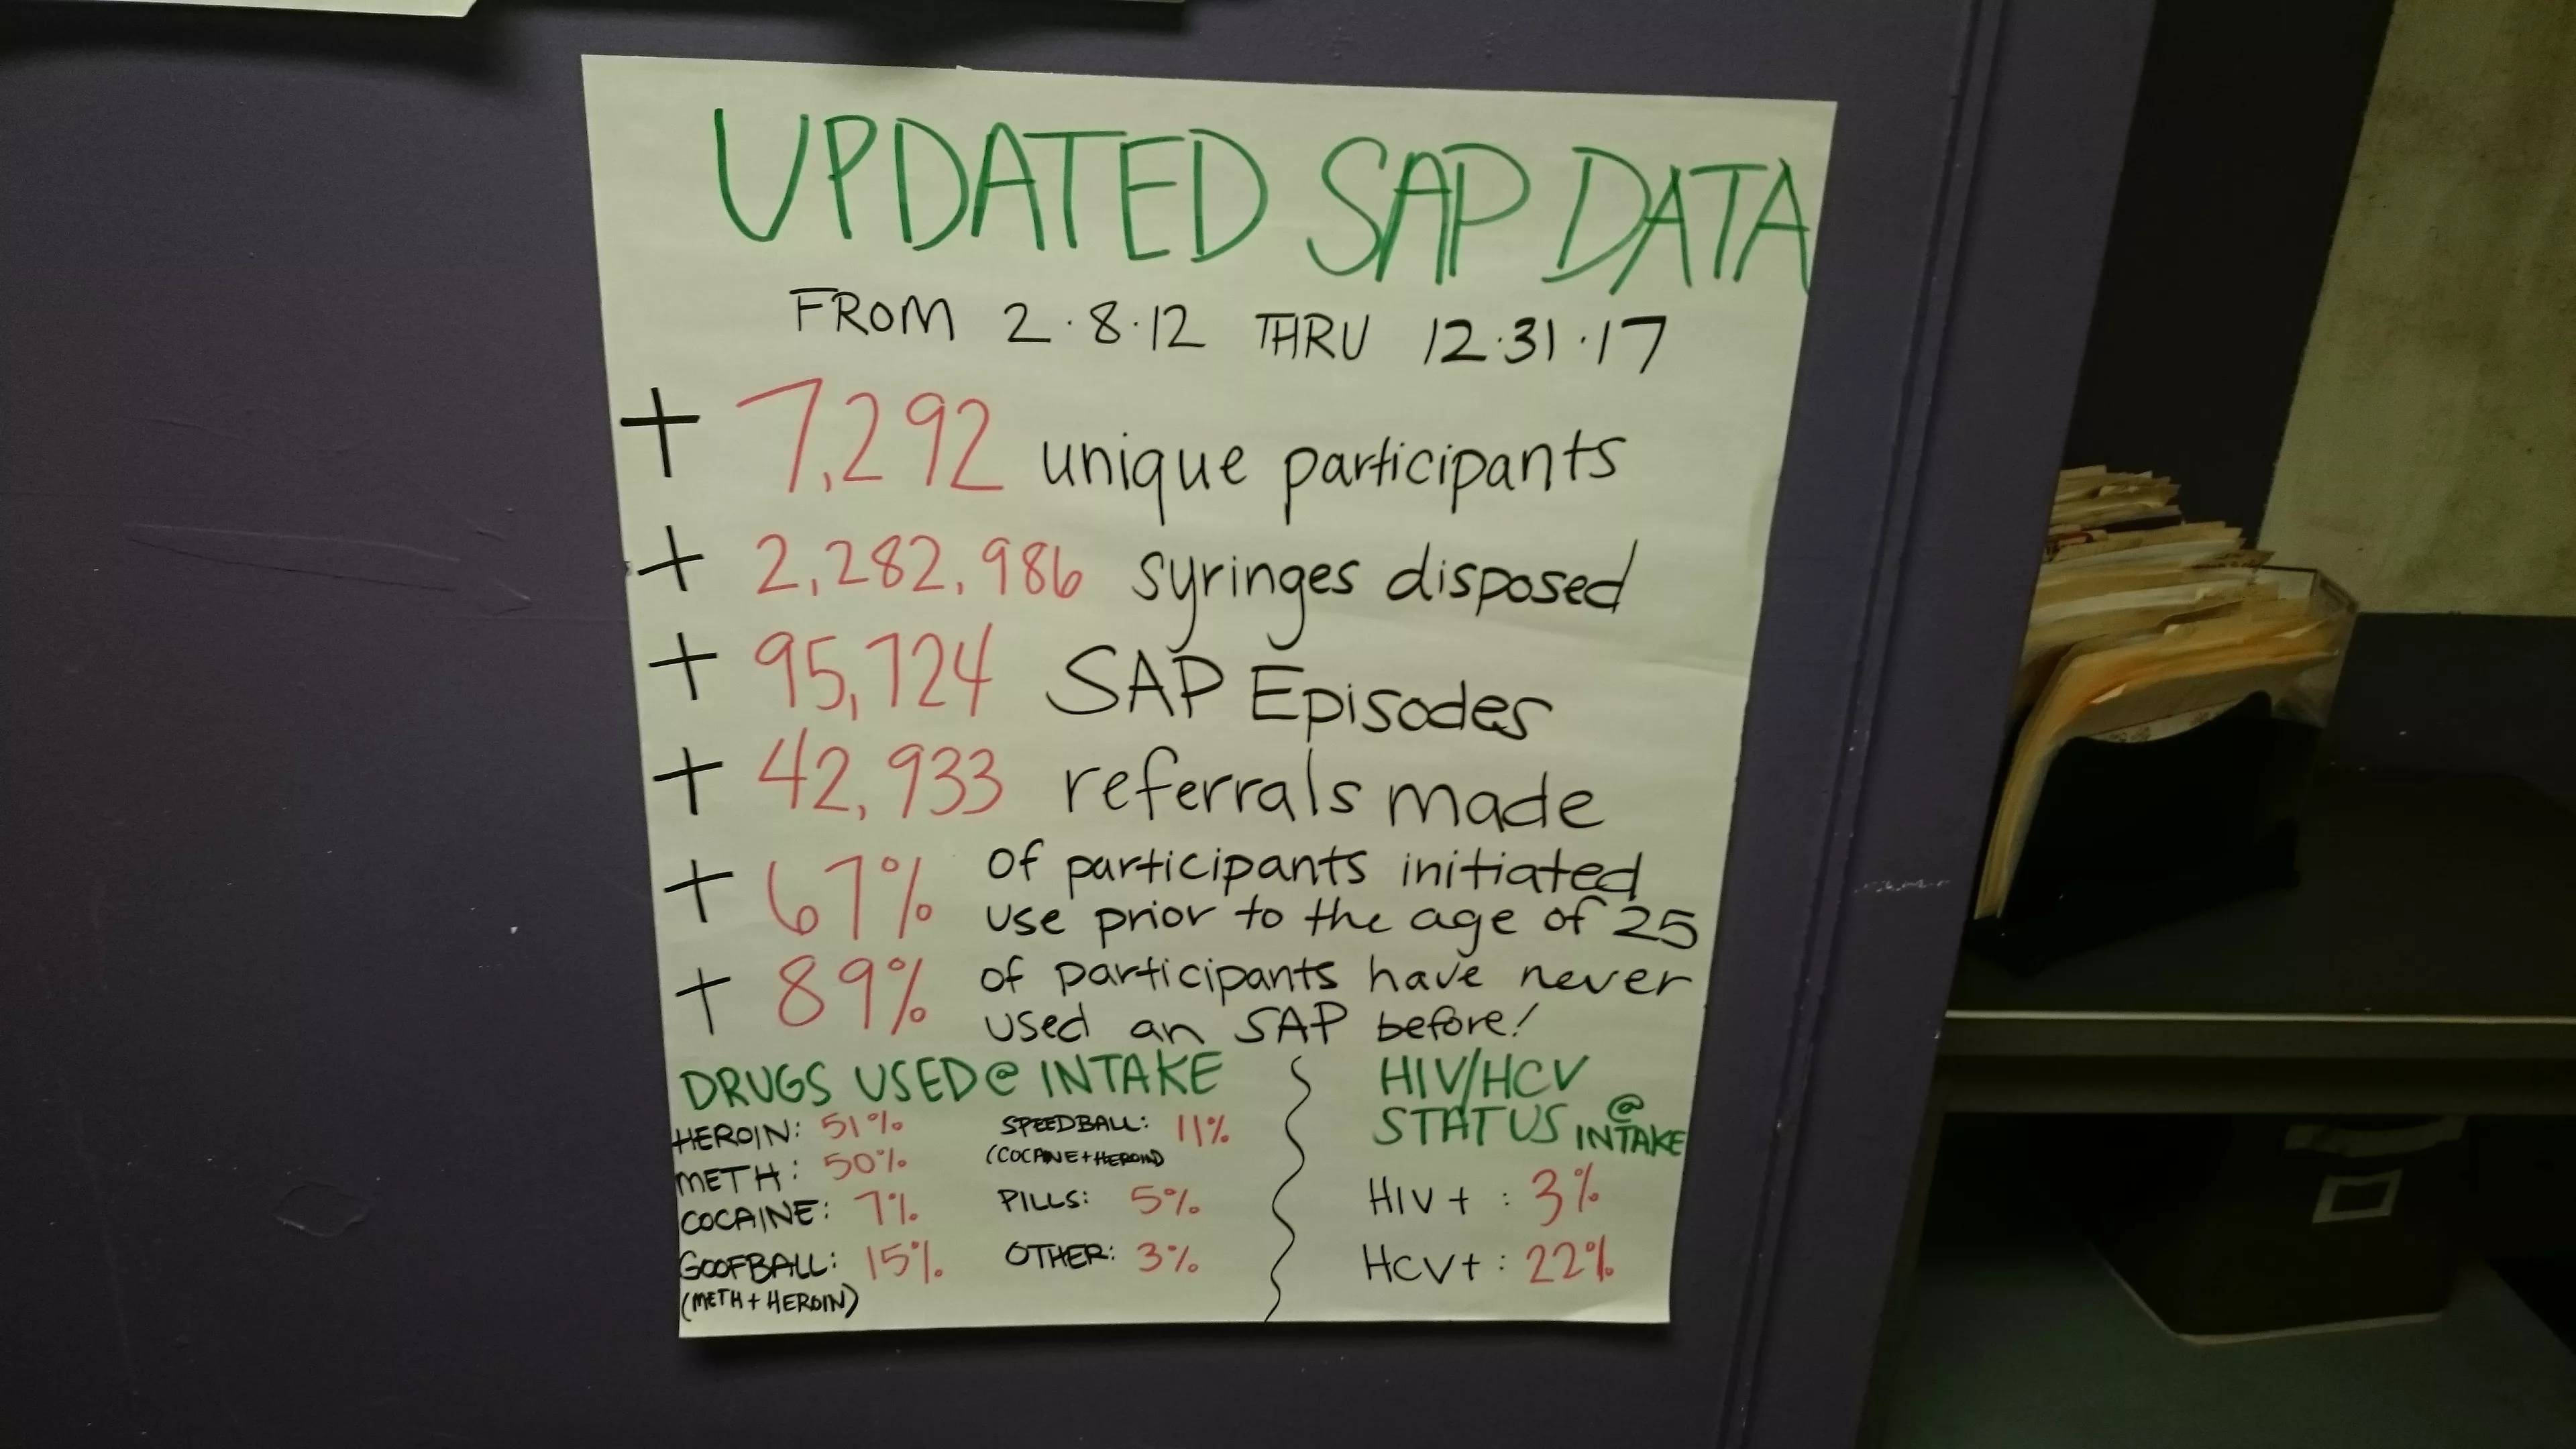 UPDATED SAP DATA
FROM 2.8.12 THRU 12.31.17
+ 7,292 unique participants
+ 2,282,986 syringes disposed
+ 95,724 SAP Episodes
+ 42,933 referrals made
+ 67% of participants initiated
use prior to the age of 25
+ 89% of participants have never
used an SAP before!
DRUGS USED @ INTAKE
HEROIN: 51%
METH: 50%
COCAINE: 7%
GOOFBALL: 15%
(METH + HEROIN)
SPEEDBALL: 11%
(COCAINE + HEROIN)
PILLS: 5%
OTHER: 3%
HIV/HCV
STATUS @ INTAKE
HIV + : 3%
HCV + : 22%